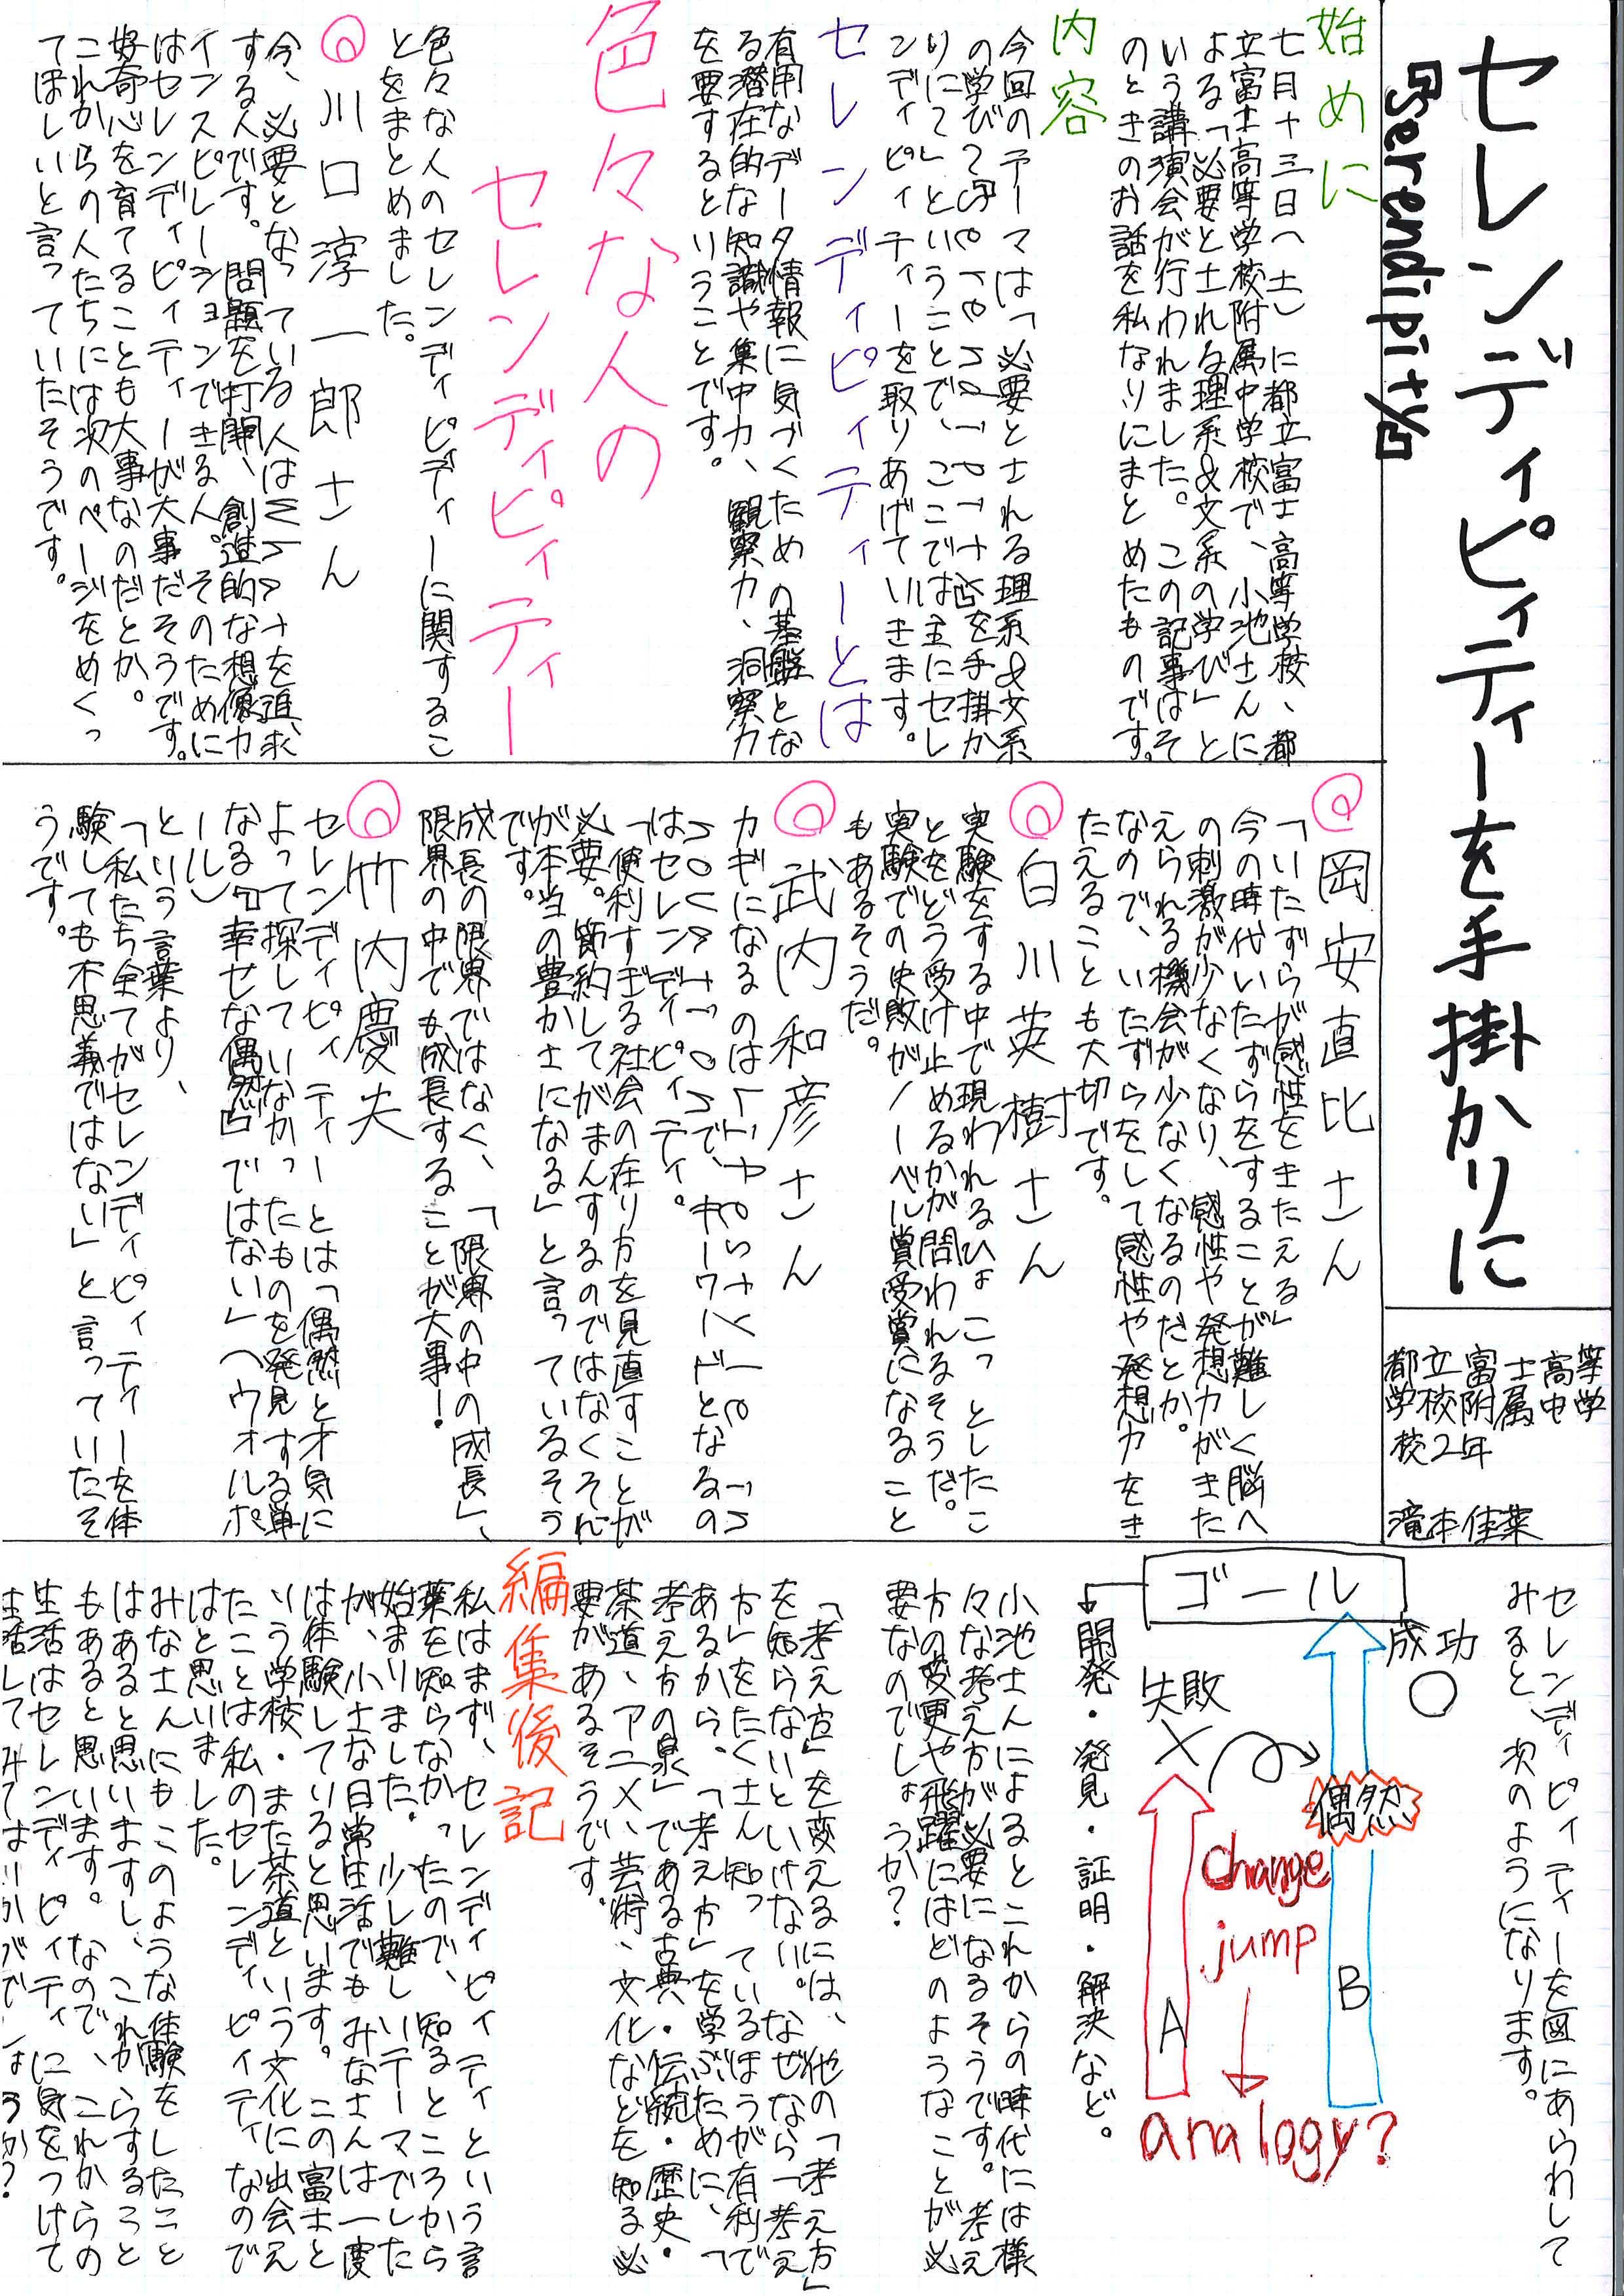 セレンディピィティーを手掛かりに
『Serendipity』
都立富士高等
学校附属中学
校2年
滝本佳菜
始めに
七月十三日(土)に都立富士高等学校、都
立富士高等学校附属中学校で、小池さんに
よる「必要とされる理系&文系の学び」と
いう講演会が行われました。この記事はそ
のときのお話を私なりにまとめたものです。
内容
今回のテーマは「必要とされる理系&文系
の学び〜Serendipityを手掛か
りに〜」ということで、ここでは主にセレ
ンディピィティーを取りあげていきます。
セレンディピィティーとは
有用なデータ情報に気づくための基盤とな
る潜在的な知識や集中力、観察力、洞察力
を要するということです。
色々な人の
セレンディピィティー
色々な人のセレンディピィティーに関するこ
とをまとめました。
◎川口淳一郎さん
今、必要となっている人は
を追求
する人です。問題を打開、創造的な想像力
インスピレーションできる人。そのために
はセレンディピィティーが大事だそうです。
好奇心を育てることも大事なのだとか。
これからの人たちには次のページをめくっ
てほしいと言っていたそうです。
◎岡安直比さん
「いたずらが感性をきたえる」
今の時代いたずらをすることが難しく脳へ
の刺激が少なくなり、感性や発想力がきた
えられる機会が少なくなるのだとか。
なので、いたずらをして感性や発想力をき
たえることも大切です。
◎白川英樹さん
実験をする中で現われるひょこっとしたこ
とをどう受け止めるかが問われるそうだ。
実験での失敗がノーベル賞受賞になること
もあるそうだ。
◎武内和彦さん
カギになるのは
で、キーワードとなるの
はセレンディピィティ。
「便利すぎる社会の在り方を見直すことが
必要。節約してがまんするのではなくそれ
が本当の豊かさになる」と言っているそう
です。
成長の限界ではなく、「限界の中の成長」、
限界の中でも成長することが大事!
◎竹内慶夫
セレンディピィティーとは「偶然と才気に
よって探していなかったものを発見する単
なる『幸せな偶然』ではない」(ウォルポ
ール)
という言葉より、
「私たち全てがセレンディピィティーを体
験しても不思議ではない」と言っていたそ
うです。
セレンディピィティーを図にあらわして
みると、次のようになります。
ゴール
成功
○
失敗
×
偶然
change
jump
A
B
analogy?
開発・発見・証明・解決など。
小池さんによるとこれからの時代には様
々な考え方が必要になるそうです。考え
方の変更や飛躍にはどのようなことが必
要なのでしょうか?
「考え方」を変えるには、他の「考え方」
を知らないといけない。なぜなら「考え
方」をたくさん知っているほうが有利で
あるから。「考え方」を学ぶために、「
考え方の泉」である古典・伝統・歴史・
茶道、アニメ、芸術、文化などを知る必
要があるそうです。
編集後記
私はまず、セレンディピィティという言
葉を知らなかったので、知るところから
始まりました。少し難しいテーマでした
が、小さな日常生活でもみなさんは一度
は体験していると思います。この富士と
いう学校・また茶道という文化に出会え
たことは私のセレンディピィティなので
はと思いました。
みなさんにもこのような体験をしたこと
はあると思いますし、これからすること
もあると思います。なので、これからの
生活はセレンディピィティに気をつけて
生活してみてはいかがでしょうか?